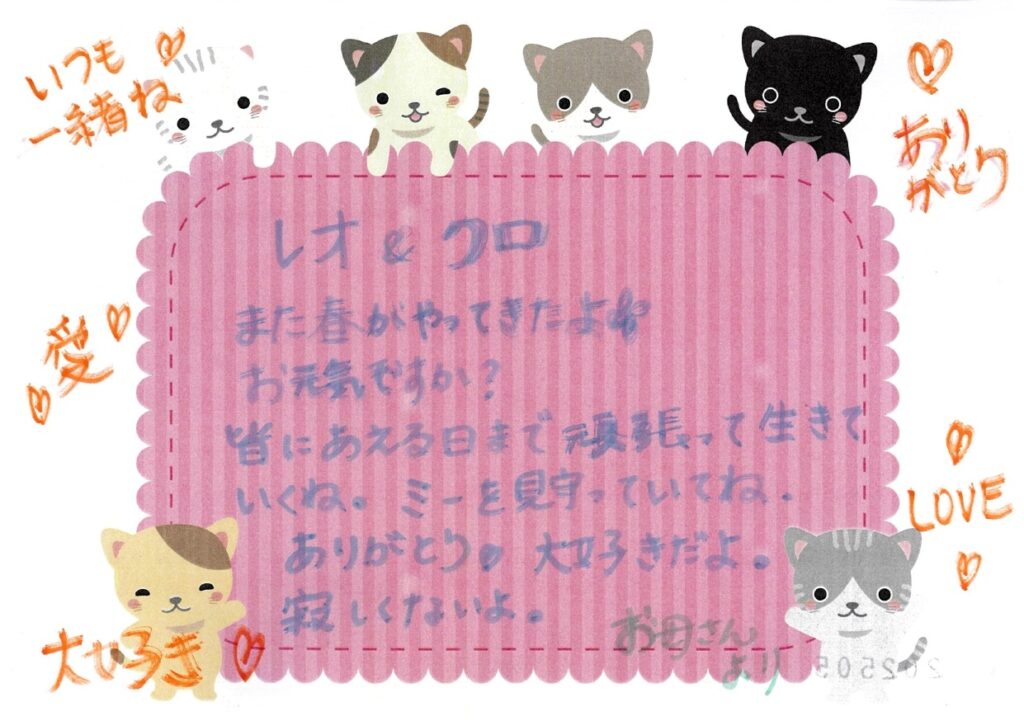 いつも
一緒ね
あり
がとう
レオ & クロ
また春がやってきたよ
お元気ですか?
皆にあえる日まで頑張って生きて
いくね。ミーを見守っていてね。
ありがとう 大好きだよ。
寂しくないよ。
お母さん
より
愛
LOVE
大好き
202505